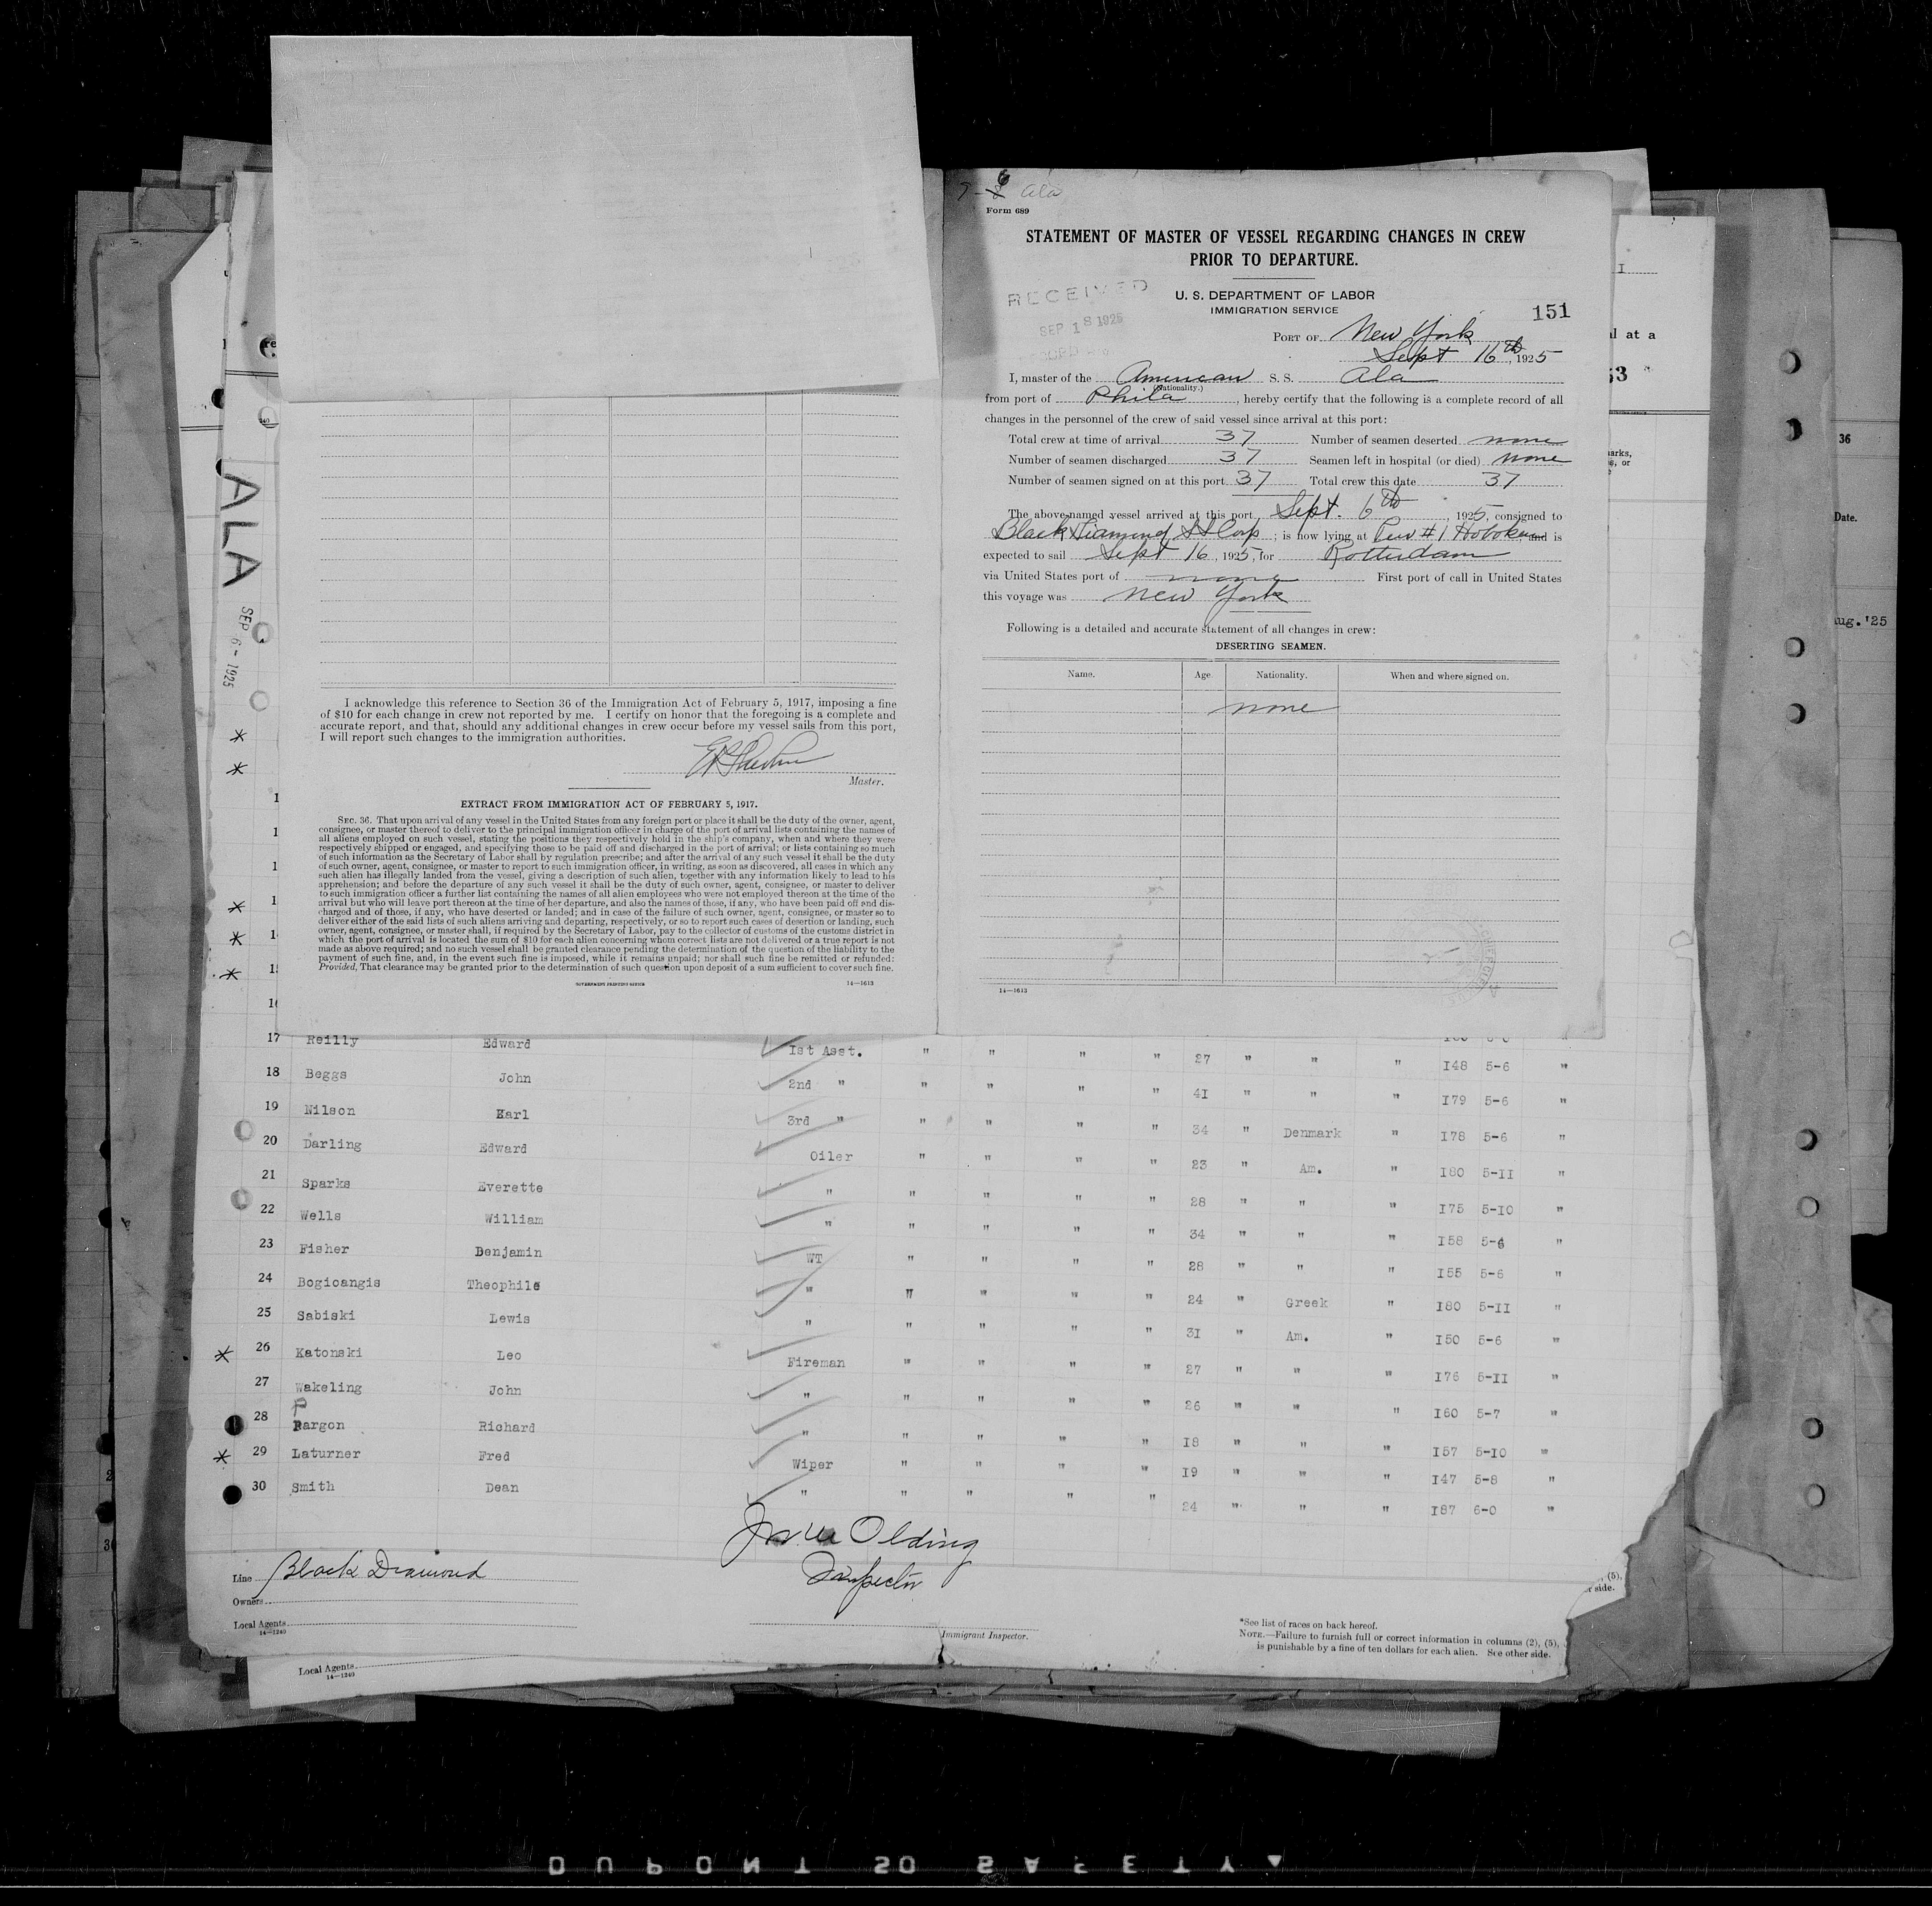 6
Ala
Form 689
STATEMENT OF MASTER OF VESSEL REGARDING CHANGES IN CREW
PRIOR TO DEPARTURE.
RECEIVED
SEP 18 1925
U. S. DEPARTMENT OF LABOR
IMMIGRATION SERVICE
151
PORT OF New York
Sept 16th, 1925
I, master of the American S. S. Ala
(Nationality.)
from port of Phila, hereby certify that the following is a complete record of all
changes in the personnel of the crew of said vessel since arrival at this port:
Total crew at time of arrival 37 Number of seamen deserted none
Number of seamen discharged 37 Seamen left in hospital (or died) none
Number of seamen signed on at this port 37 Total crew this date 37
The above-named vessel arrived at this port Sept. 6th, 1925, consigned to
Black Diamond SS Corp; is now lying at Pier #1 Hoboken, and is
expected to sail Sept 16, 1925, for Rotterdam
via United States port of none First port of call in United States
this voyage was New York
Following is a detailed and accurate statement of all changes in crew:
DESERTING SEAMEN.
Name. Age. Nationality. When and where signed on.
none
14—1613
I acknowledge this reference to Section 36 of the Immigration Act of February 5, 1917, imposing a fine
of $10 for each change in crew not reported by me. I certify on honor that the foregoing is a complete and
accurate report, and that, should any additional changes in crew occur before my vessel sails from this port,
I will report such changes to the immigration authorities.
Master.
EXTRACT FROM IMMIGRATION ACT OF FEBRUARY 5, 1917.
SEC. 36. That upon arrival of any vessel in the United States from any foreign port or place it shall be the duty of the owner, agent,
consignee, or master thereof to deliver to the principal immigration officer in charge of the port of arrival lists containing the names of
all aliens employed on such vessel, stating the positions they respectively hold in the ship's company, when and where they were
respectively shipped or engaged, and specifying those to be paid off and discharged in the port of arrival; or lists containing so much
of such information as the Secretary of Labor shall by regulation prescribe; and after the arrival of any such vessel it shall be the duty
of such owner, agent, consignee, or master to report to such immigration officer, in writing, as soon as discovered, all cases in which any
such alien has illegally landed from the vessel, giving a description of such alien, together with any information likely to lead to his
apprehension; and before the departure of any such vessel it shall be the duty of such owner, agent, consignee, or master to deliver
to such immigration officer a further list containing the names of all alien employees who were not employed thereon at the time of the
arrival but who will leave port thereon at the time of her departure, and also the names of those, if any, who have been paid off and dis-
charged and of those, if any, who have deserted or landed; and in case of the failure of such owner, agent, consignee, or master so to
deliver either of the said lists of such aliens arriving and departing, respectively, or so to report such cases of desertion or landing, such
owner, agent, consignee, or master shall, if required by the Secretary of Labor, pay to the collector of customs of the customs district in
which the port of arrival is located the sum of $10 for each alien concerning whom correct lists are not delivered or a true report is not
made as above required; and no such vessel shall be granted clearance pending the determination of the question of the liability to the
payment of such fine, and, in the event such fine is imposed, while it remains unpaid; nor shall such fine be remitted or refunded:
Provided, That clearance may be granted prior to the determination of such question upon deposit of a sum sufficient to cover such fine.
GOVERNMENT PRINTING OFFICE 14—1613
ALA
SEP 6 - 1925
l at a
53
36
Date.
Aug. '25
17 Reilly Edward 1st Asst. " " " " 27 " " " 148 5-6 "
18 Beggs John 2nd " " " " " 41 " " " 179 5-6 "
19 Nilson Karl 3rd " " " " " 34 " Denmark " 178 5-6 "
20 Darling Edward Oiler " " " " 23 " Am. " 180 5-11 "
21 Sparks Everette " " " " " 28 " " " 175 5-10 "
22 Wells William " " " " " 34 " " " 158 5-4 "
23 Fisher Benjamin WT " " " " 28 " " " 155 5-6 "
24 Bogioangis Theophile " " " " " 24 " Greek " 180 5-11 "
25 Sabiski Lewis " " " " " 31 " Am. " 150 5-6 "
26 Katonski Leo Fireman " " " " 27 " " " 176 5-11 "
27 Wakeling John " " " " " 26 " " " 160 5-7 "
P
28 Bargon Richard " " " " " 18 " " " 157 5-10 "
29 Laturner Fred Wiper " " " " 19 " " " 147 5-8 "
30 Smith Dean " " " " " 24 " " " 187 6-0 "
Olding
Inspector
Line Black Diamond
Owners
Local Agents
14—1240
Immigrant Inspector.
*See list of races on back hereof.
NOTE.—Failure to furnish full or correct information in columns (2), (5),
is punishable by a fine of ten dollars for each alien. See other side.
Local Agents
14—1240
DUPONT 50 SAFETY